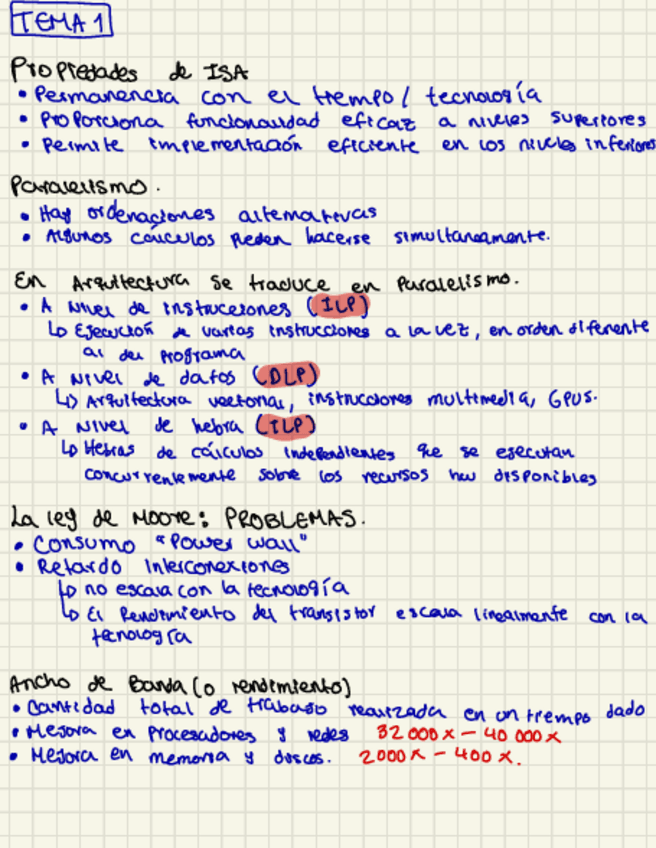 TEMA 1
Propiedades de ISA
• Permanencia con el tiempo / tecnología
• Proporciona funcionalidad eficaz a niveles superiores
• Permite implementación eficiente en los niveles inferiores
Paralelismo.
• Hay ordenaciones alternativas
• Algunos cálculos pueden hacerse simultaneamente.
En Arquitectura se traduce en Paralelismo.
• A Nivel de instrucciones (ILP)
↳ Ejecución de varias instrucciones a la vez, en orden diferente
al del programa
• A nivel de datos (DLP)
↳ Arquitectura vectorial, instrucciones multimedia, GPUs.
• A nivel de hebra (TLP)
↳ Hebras de cálculos independientes que se ejecutan
concurrentemente sobre los recursos hw disponibles
La ley de Moore: PROBLEMAS.
• Consumo "Power wall"
• Retardo Interconexiones
↳ no escala con la tecnología
↳ El Rendimiento del transistor escala linealmente con la
tecnología
Ancho de Banda (o rendimiento)
• Cantidad total de trabajo realizada en un tiempo dado
• Mejora en Procesadores y redes 32 000x - 40 000x
• Mejora en memoria y discos. 2000x - 400x.